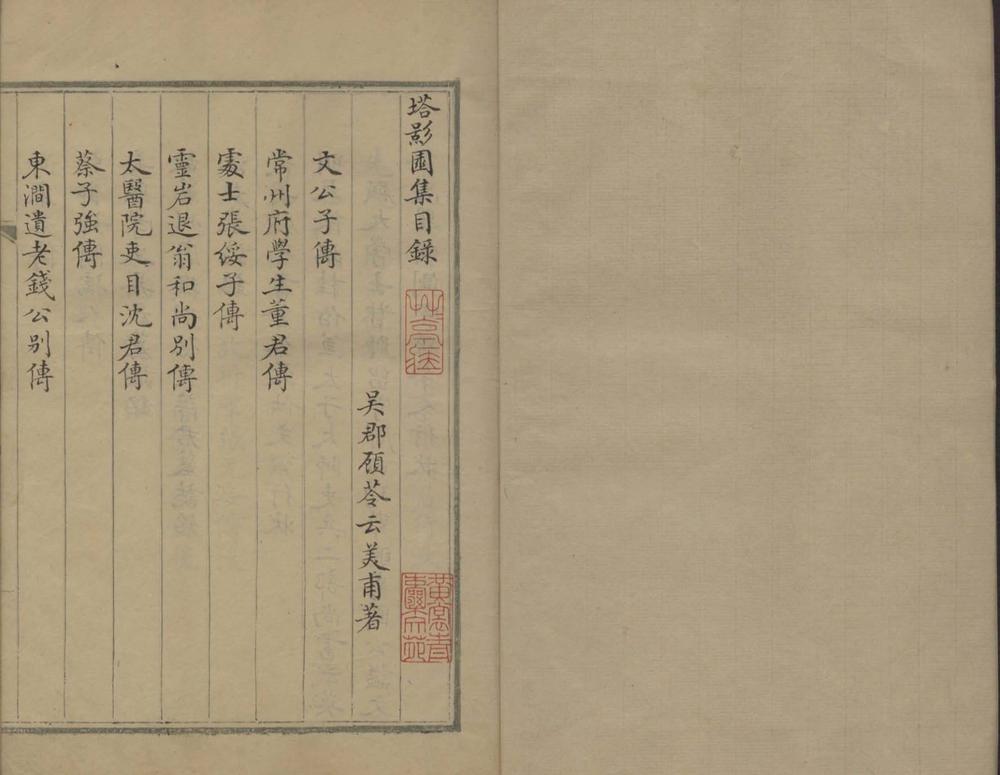 塔影園集目錄
吴郡頋苓云美甫著
文公子傳
常州府學生董君傳
處士張綏子傳
靈岩退翁和尚别傳
太醫院吏目沈君傳
蔡子強傳
東澗遺老錢公别傳